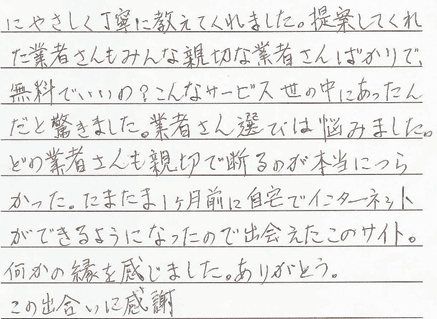 にやさしく丁寧に教えてくれました。提案してくれ
た業者さんもみんな親切な業者さんばかりで、
無料でいいの？こんなサービス世の中にあったん
だと驚きました。業者さん選びは悩みました。
どの業者さんも親切で断るのが本当につら
かった。たまたま1ヶ月前に自宅でインターネット
ができるようになったので出会えたこのサイト。
何かの縁を感じました。ありがとう。
この出合いに感謝